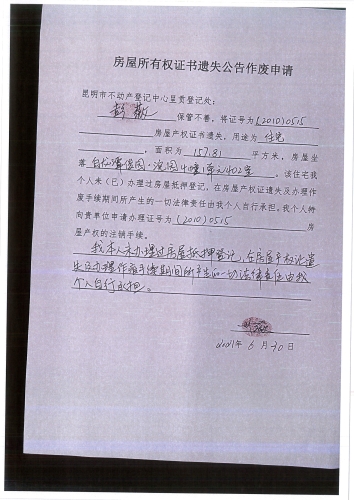 房屋所有权证书遗失公告作废申请
昆明市不动产登记中心呈贡登记处：
彭 保管不善，将证号为(2010)0515
房屋产权证书遗失，用途为 住宅
，面积为 157.81 平方米，房屋坐
落 4幢 单元402室 。该住宅我
个人未（已）办理过房屋抵押登记，在房屋产权证遗失及办理作
废手续期间所产生的一切法律责任由我个人自行承担。我个人特
向贵单位申请办理证号为(2010)0515 房
屋产权的注销手续。
我本人未办理过房屋抵押登记，在房屋产权证遗
失及办理作废手续期间所产生的一切法律责任由我
个人自行承担。
2021年 6 月 30 日